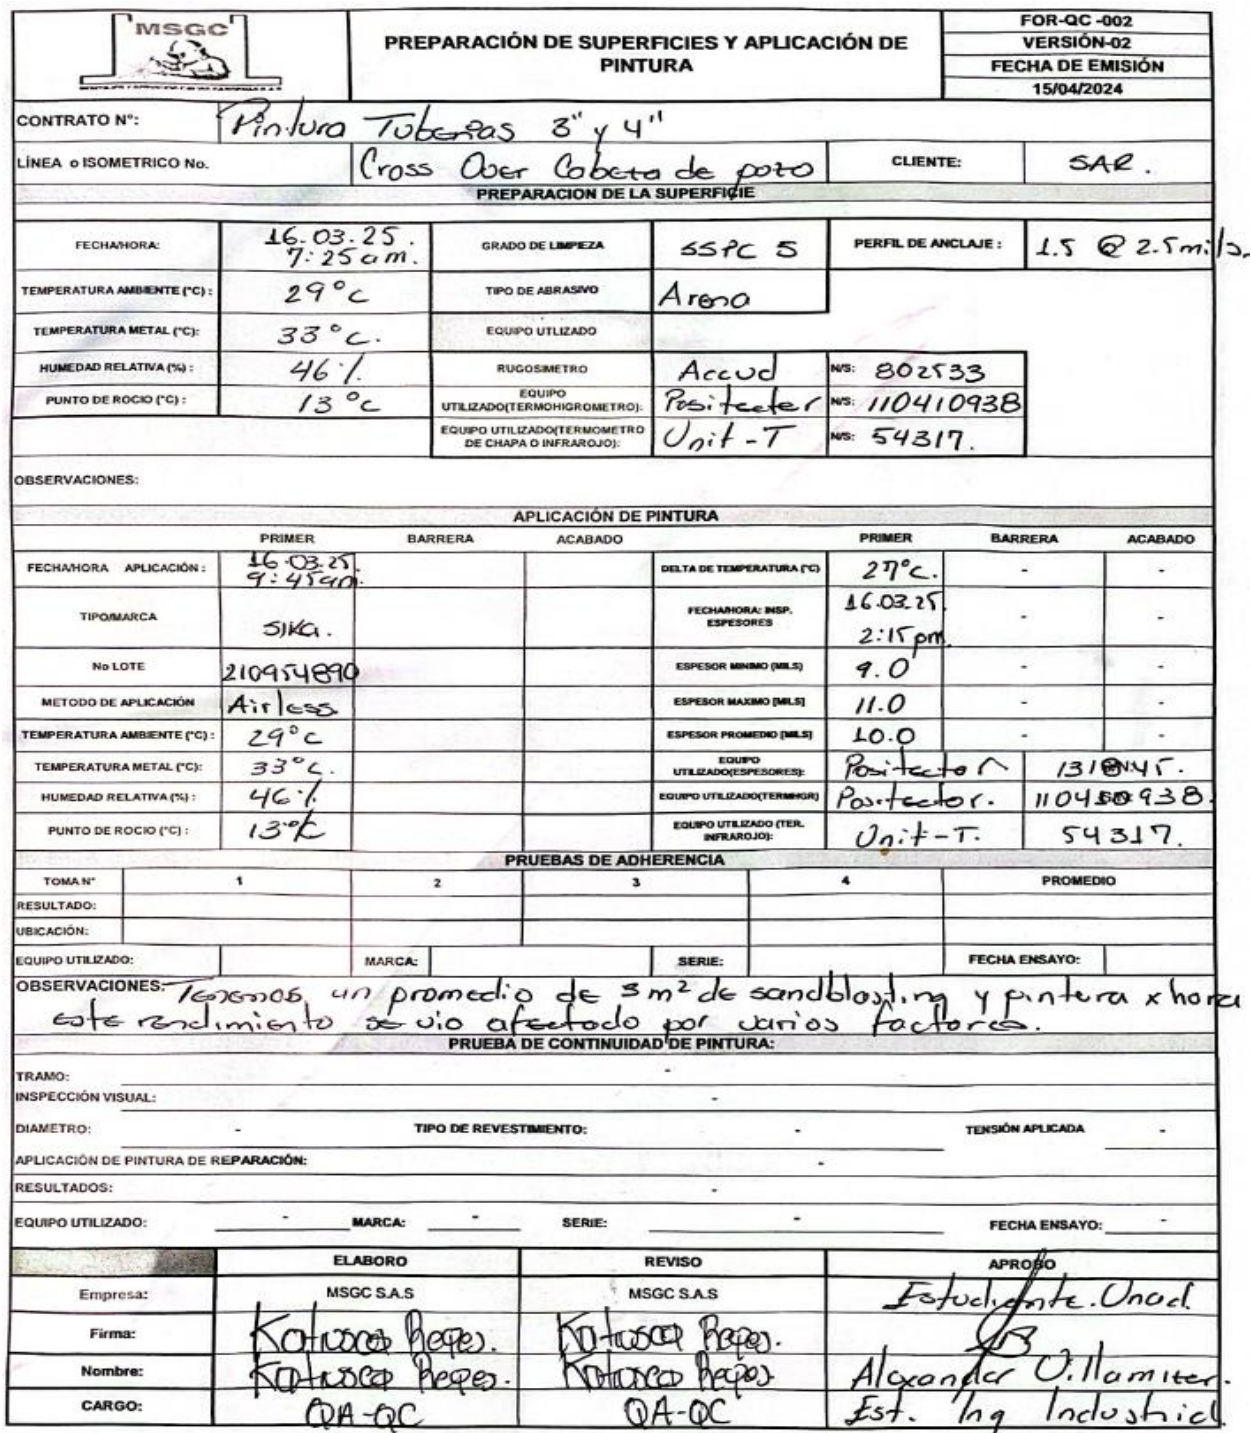 MSGC
PREPARACIÓN DE SUPERFICIES Y APLICACIÓN DE
PINTURA
FOR-QC -002
VERSIÓN-02
FECHA DE EMISIÓN
15/04/2024
CONTRATO N°: Pintura Tuberias 3" y 4"
LÍNEA o ISOMETRICO No. Cross Over Cabeza de pozo CLIENTE: SAR.
PREPARACION DE LA SUPERFICIE
FECHA/HORA: 16.03.25. 7:25 am. GRADO DE LIMPIEZA SSPC 5 PERFIL DE ANCLAJE : 1.5 @ 2.5 mils.
TEMPERATURA AMBIENTE (°C) : 29°C TIPO DE ABRASIVO Arena
TEMPERATURA METAL (°C): 33°C. EQUIPO UTLIZADO
HUMEDAD RELATIVA (%) : 46% RUGOSIMETRO Accud N/S: 802533
PUNTO DE ROCIO (°C) : 13°C EQUIPO UTILIZADO(TERMOHIGROMETRO): Positecter N/S: 110410938
EQUIPO UTILIZADO(TERMOMETRO DE CHAPA O INFRAROJO): Unit-T N/S: 54317.
OBSERVACIONES:
APLICACIÓN DE PINTURA
PRIMER BARRERA ACABADO PRIMER BARRERA ACABADO
FECHA/HORA APLICACIÓN : 16.03.25. 9:45am. DELTA DE TEMPERATURA (°C) 27°C. - -
TIPO/MARCA SIKA. FECHA/HORA: INSP. ESPESORES 16.03.25 2:15 pm. - -
No LOTE 210954890 ESPESOR MINIMO (MILS) 9.0 - -
METODO DE APLICACIÓN Airless ESPESOR MAXIMO [MILS] 11.0 - -
TEMPERATURA AMBIENTE (°C) : 29°C ESPESOR PROMEDIO [MILS] 10.0 - -
TEMPERATURA METAL (°C): 33°C. EQUIPO UTILIZADO(ESPESORES): Positector
HUMEDAD RELATIVA (%) : 46% EQUIPO UTILIZADO(TERMHGR) Positector.
PUNTO DE ROCIO (°C) : 13°C EQUIPO UTILIZADO (TER. INFRAROJO): Unit-T. 54317.
PRUEBAS DE ADHERENCIA
TOMA N° 1 2 3 4 PROMEDIO
RESULTADO:
UBICACIÓN:
EQUIPO UTILIZADO: MARCA: SERIE: FECHA ENSAYO:
OBSERVACIONES: Tenemos un promedio de 3 m² de sandblasting y pintura x hora
este rendimiento se vio afectado por varios factores.
PRUEBA DE CONTINUIDAD DE PINTURA:
TRAMO: -
INSPECCIÓN VISUAL: -
DIAMETRO: - TIPO DE REVESTIMIENTO: - TENSIÓN APLICADA -
APLICACIÓN DE PINTURA DE REPARACIÓN: -
RESULTADOS: -
EQUIPO UTILIZADO: - MARCA: - SERIE: - FECHA ENSAYO: -
ELABORO REVISO APROBO
Empresa: MSGC S.A.S MSGC S.A.S Estudiante.Unad.
Firma: Katusca Reyes. Katusca Reyes.
Nombre: Katusca Reyes. Katusca Reyes
CARGO: QA-QC QA-QC Est. Ing Industrial
Alexander Villamizar.